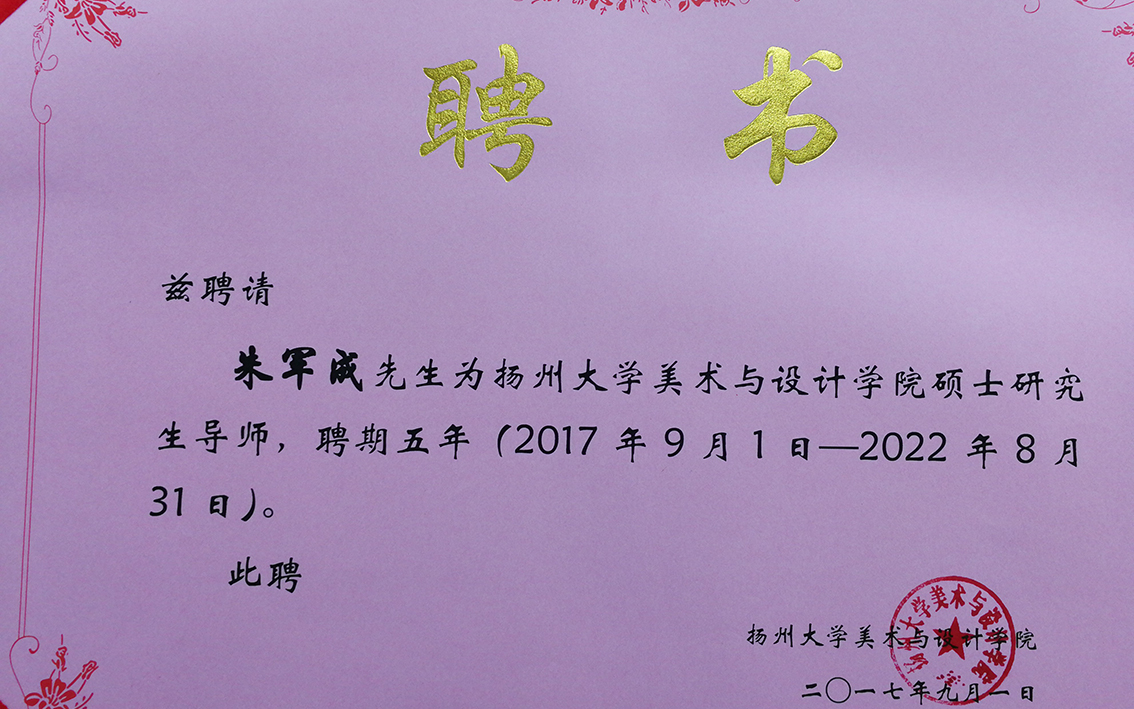 聘书
兹聘请
朱军成先生为扬州大学美术与设计学院硕士研究
生导师，聘期五年（2017 年 9 月 1 日—2022 年 8 月
31 日）。
此聘
扬州大学美术与设计学院
二〇一七年九月一日
扬州大学美术与设计学院